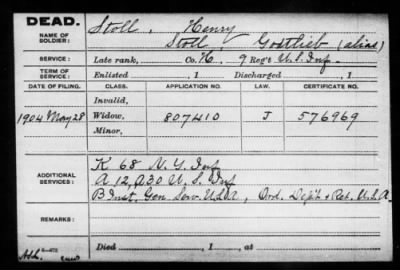 DEAD.
NAME OF SOLDIER: Stoll, Henry
Stoll, Gottlieb (alias)
SERVICE: Late rank, Co. H, 9 Reg't U.S. Inf.
TERM OF SERVICE: Enlisted , 1 Discharged , 1
DATE OF FILING. CLASS. APPLICATION NO. LAW. CERTIFICATE NO.
Invalid,
1904 May 28 Widow, 807410 J 576969
Minor,
ADDITIONAL SERVICES: K 68 N.Y. Inf
A 12, A 30 U.S. Inf
B Inst. Gen. Serv. U.S.A, Ord. Dep't & Ret. U.S.A.
REMARKS:
Died , 1 , at
Add.